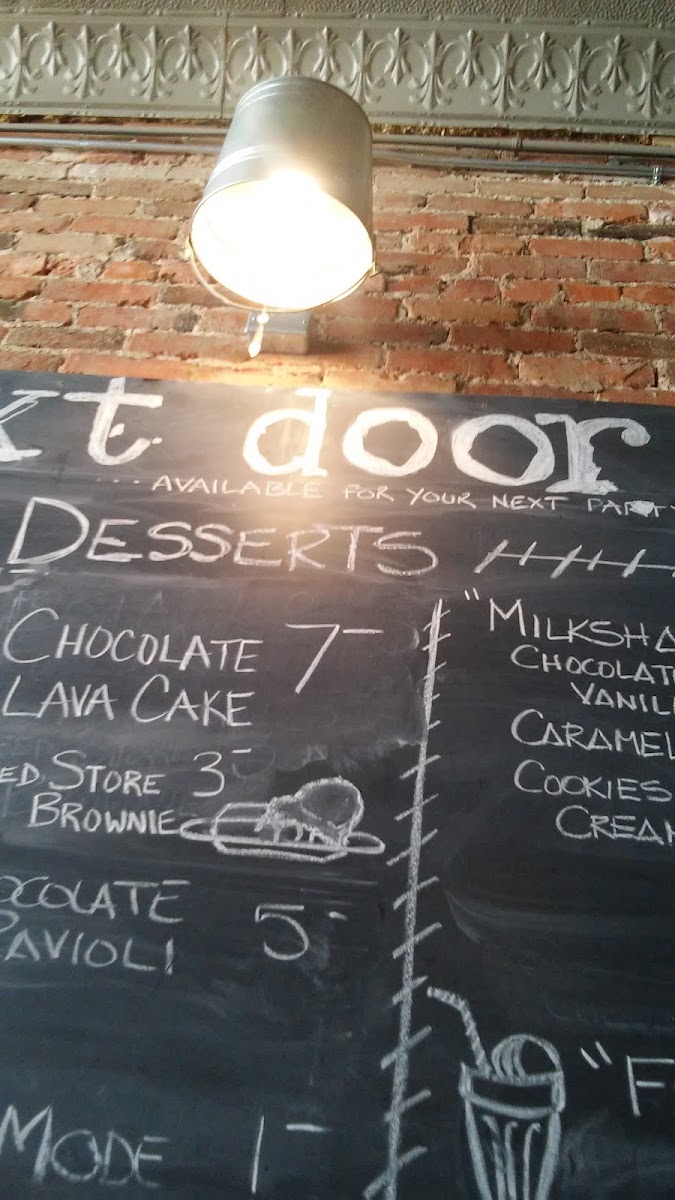 xt door
...AVAILABLE FOR YOUR NEXT PARTY
DESSERTS
CHOCOLATE 7-
LAVA CAKE
ED STORE 3-
BROWNIE
OCOLATE
RAVIOLI 5-
MODE 1-
"MILKSHA
CHOCOLAT
VANIL
CARAMEL
COOKIES
CREAM
"F